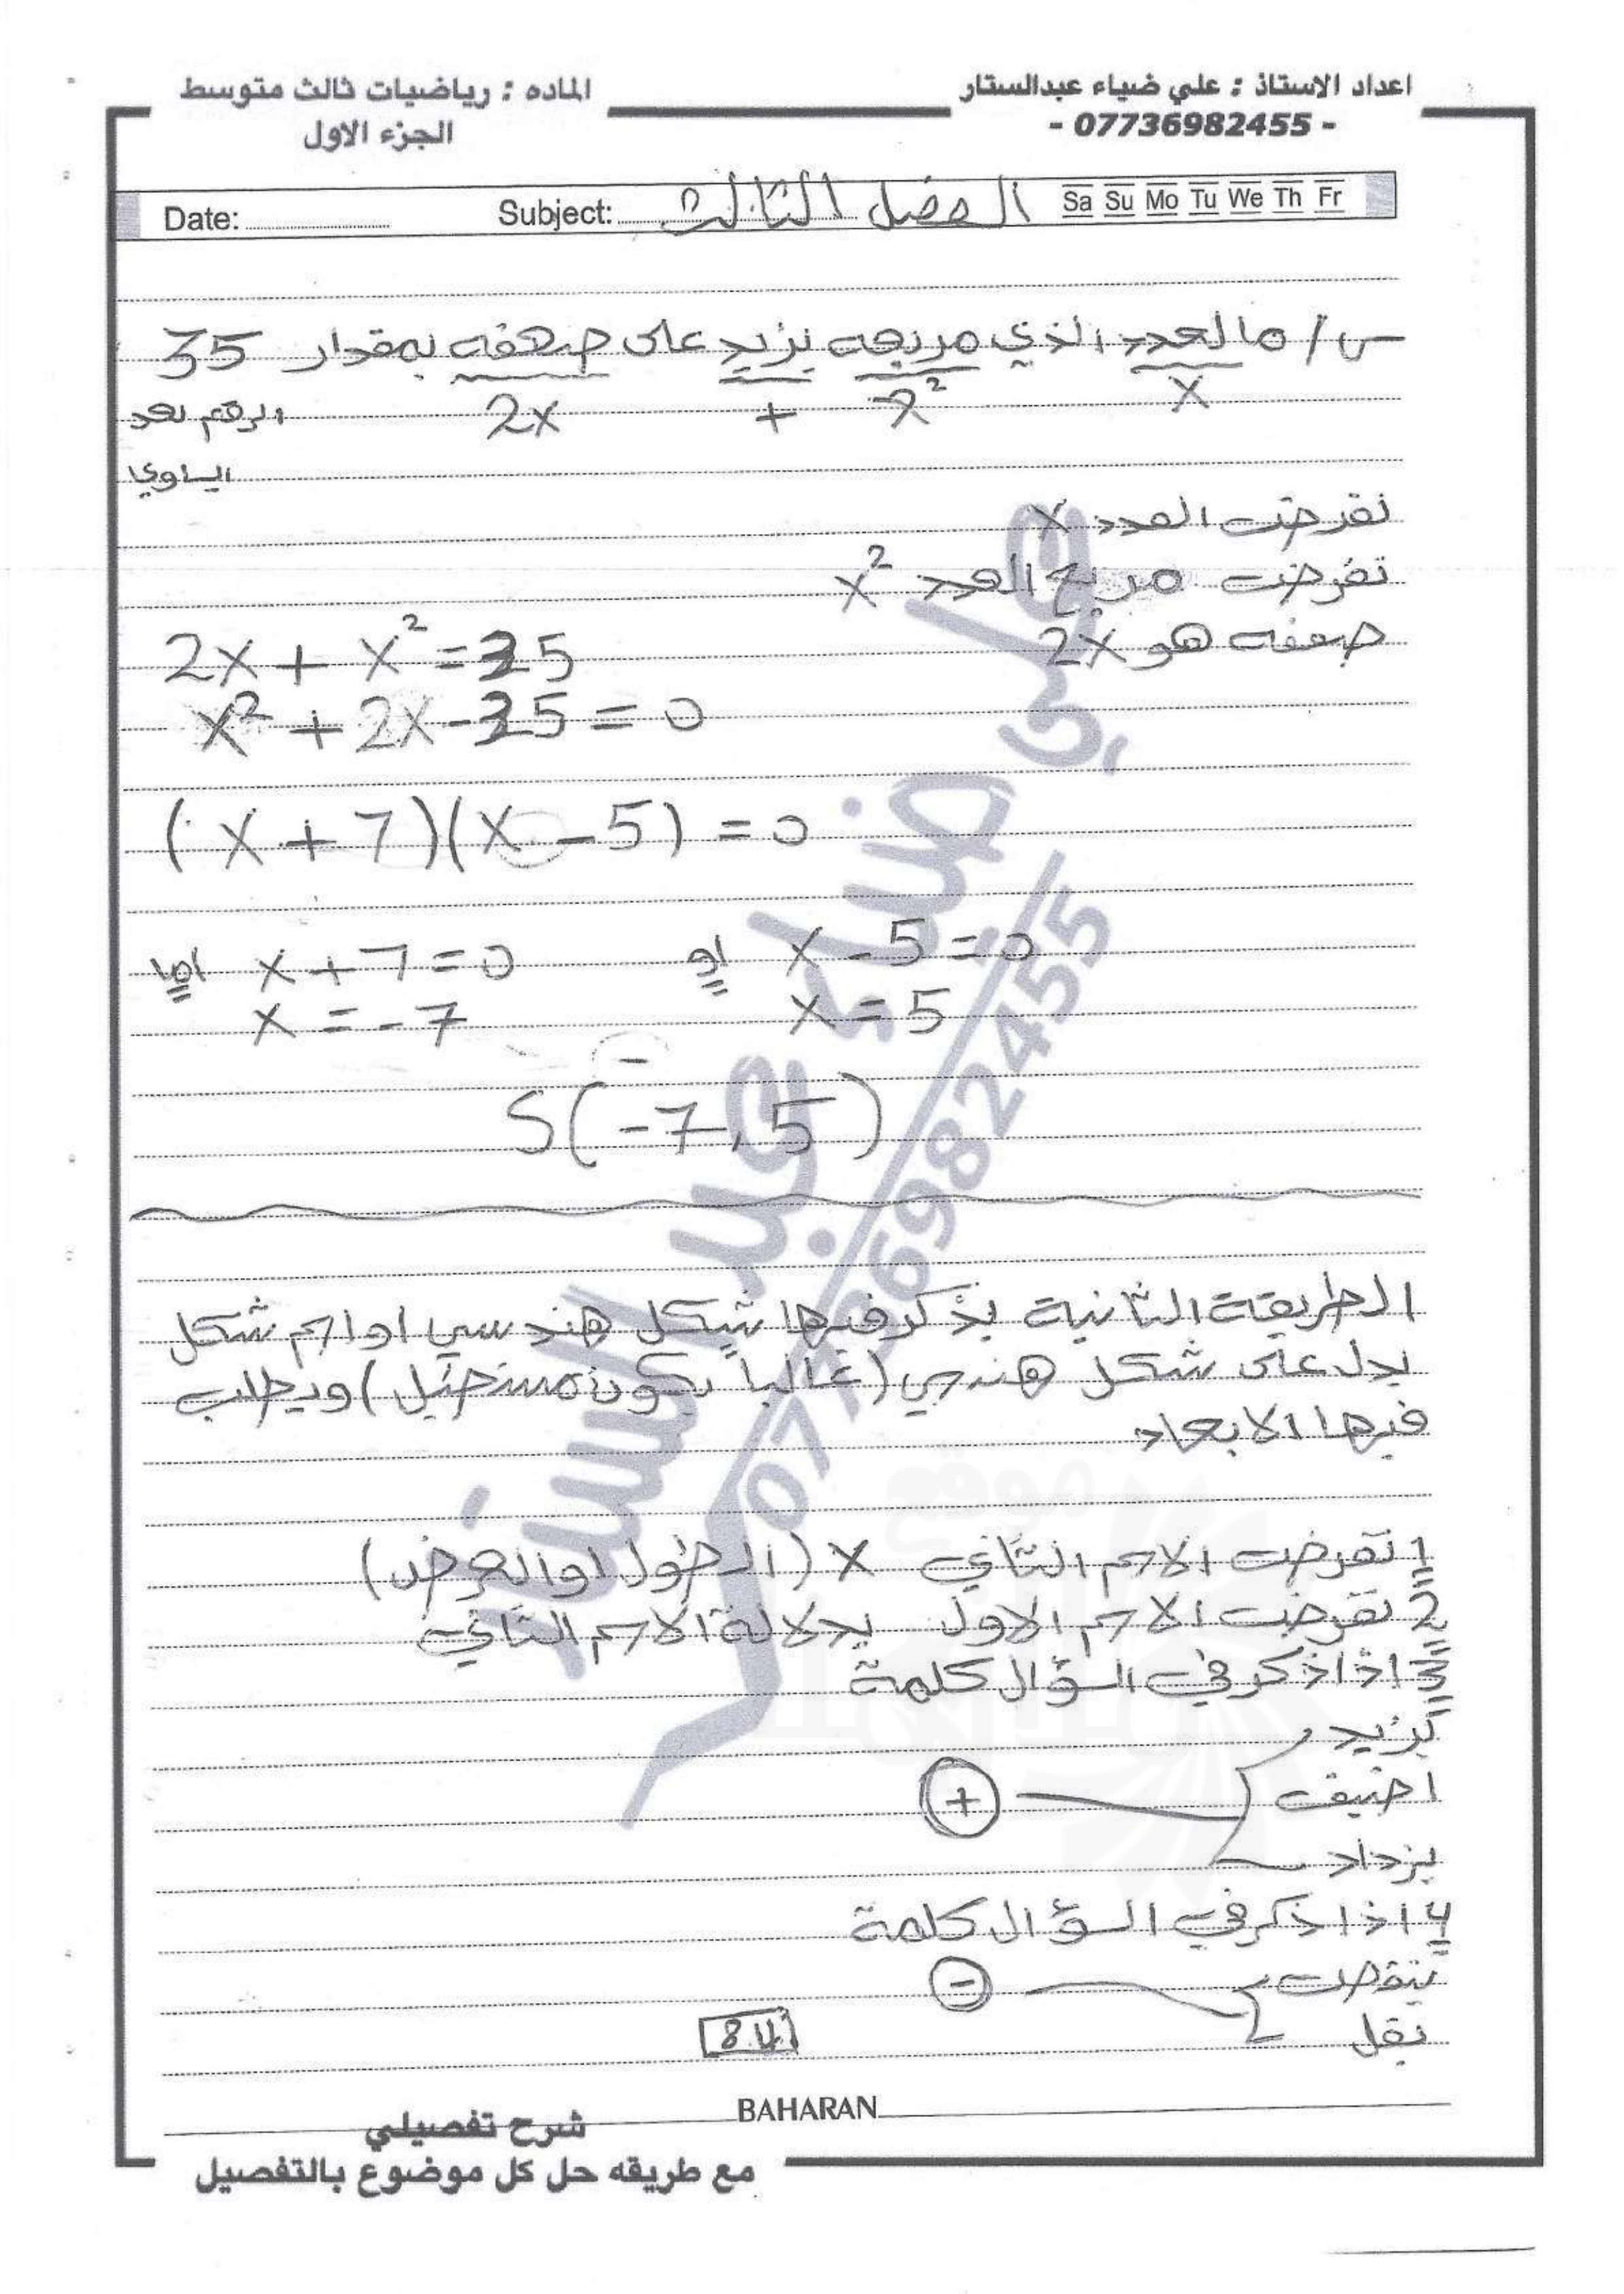 اعداد الاستاذ : علي ضياء عبدالستار
- 07736982455 -
الماده : رياضيات ثالث متوسط
الجزء الاول
Date: Subject: الفصل الثالث Sa Su Mo Tu We Th Fr
س/ ما العدد الذي مربعه يزيد على ضعفه بمقدار 35
x x² + 2x الرقم بعد
اليساوي
نفرض العدد x
نفرض مربع العدد x²
ضعفه هو 2x
2x + x² = 35
x² + 2x - 35 = 0
(x + 7)(x - 5) = 0
اما x + 7 = 0 او x - 5 = 0
x = -7 x = 5
S(-7, 5)
الطريقة الثانية يذكر فيها شكل هندسي او اسم شكل
يدل على شكل هندسي (غالباً يكون مستطيل) ويطلب
فيها الابعاد
1 نفرض الاسم الثاني x (الطول او العرض)
2 نفرض الاسم الاول بدلالة الاسم الثاني
3 اذا ذكر في السؤال كلمة
يزيد
اضيف +
يزداد
4 اذا ذكر في السؤال كلمة
ينقص -
يقل
84
BAHARAN
شرح تفصيلي
مع طريقه حل كل موضوع بالتفصيل
علي ضياء عبد الستار
07736982455